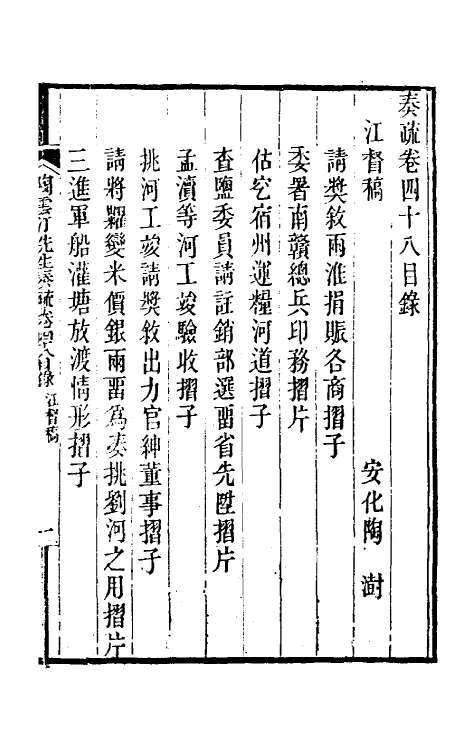 奏疏卷四十八目錄
江督稿 安化陶 澍
請獎敘兩淮捐賑各商摺子
委署南贛總兵印務摺片
估挖宿州運糧河道摺子
查鹽委員請註銷部選畱省先陞摺片
孟瀆等河工竣驗收摺子
挑河工竣請獎敘出力官紳董事摺子
請將糶變米價銀兩畱為奏挑劉河之用摺片
三進軍船灌塘放渡情形摺子
陶雲汀先生奏疏卷四十八目錄 江督稿 一